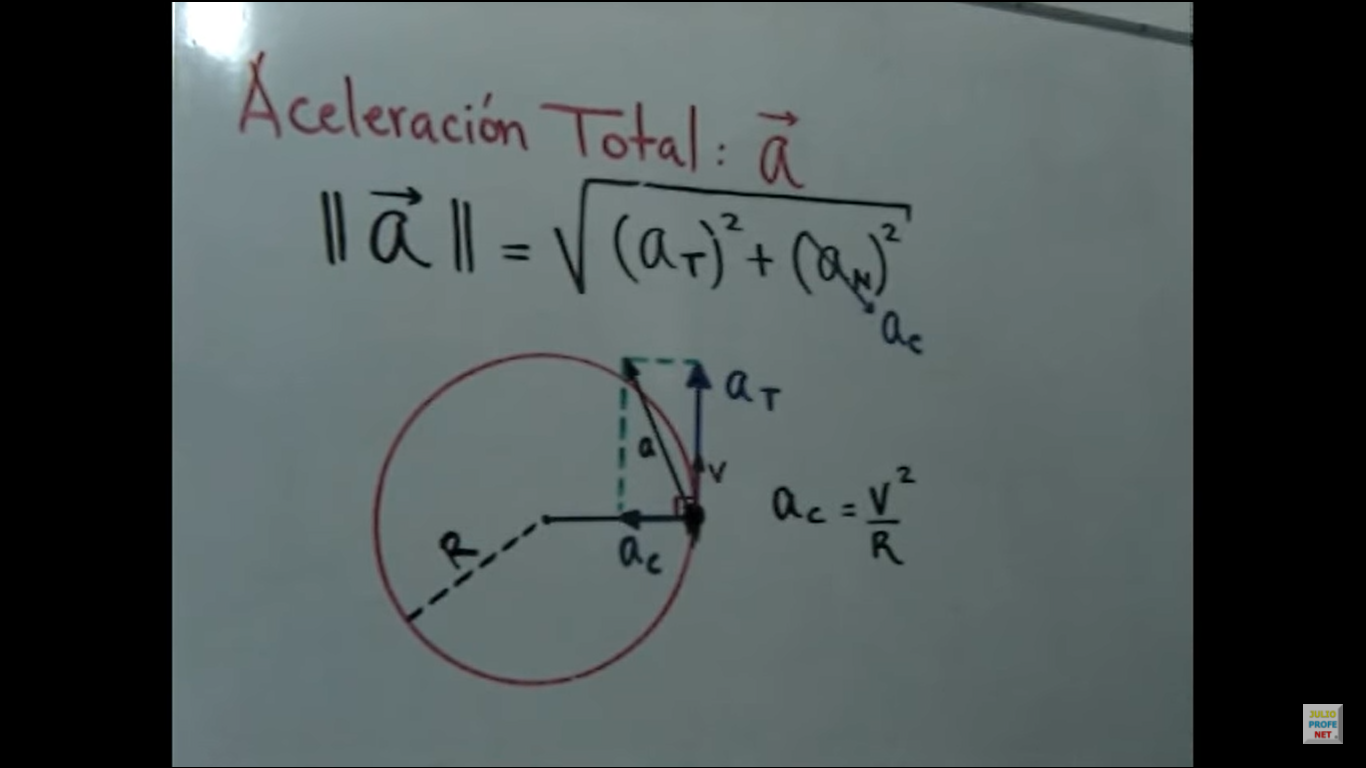 Aceleración Total: a⃗
‖a⃗‖ = √((a_T)² + (a_N)²)
a_c
a_T
a
v
a_c = v²/R
R
a_c
JULIO
PROFE
NET